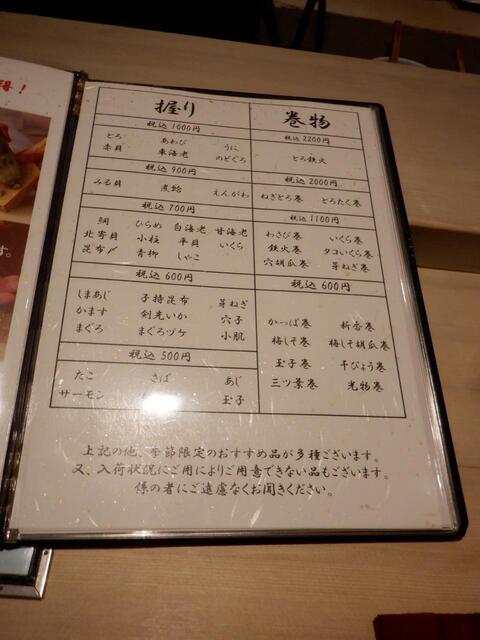 得！
す。
握り
税込 1000円
とろ あわび うに
赤貝 車海老 のどぐろ
税込 900円
みる貝 煮蛤 えんがわ
税込 700円
鯛 ひらめ 白海老 甘海老
北寄貝 小柱 平貝 いくら
昆布〆 青柳 しゃこ
税込 600円
しまあじ 子持昆布 芽ねぎ
かます 剣先いか 穴子
まぐろ まぐろヅケ 小肌
税込 500円
たこ さば あじ
サーモン 玉子
巻物
税込 2200円
とろ鉄火
税込 2000円
ねぎとろ巻 とろたく巻
税込 1100円
わさび巻 いくら巻
鉄火巻 タコいくら巻
穴胡瓜巻 芽ねぎ巻
税込 600円
かっぱ巻 新香巻
梅しそ巻 梅しそ胡瓜巻
玉子巻 干ぴょう巻
三ツ葉巻 光物巻
上記の他、季節限定のおすすめ品が多種ございます。
又、入荷状況にご用によりご用意できない品もございます。
係の者にご遠慮なくお聞きください。